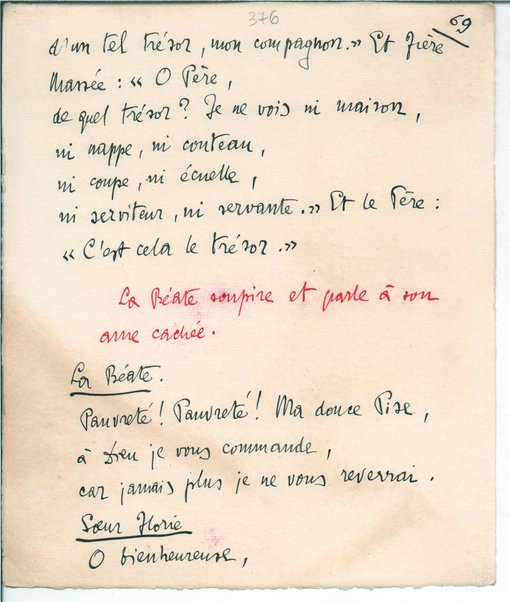 376
69
d'un tel trésor, mon compagnon.» Et Frère
Massée : « O Père,
de quel trésor? Je ne vois ni maison,
ni nappe, ni couteau,
ni coupe, ni écuelle,
ni serviteur, ni servante.» Et le Père :
« C'est cela le trésor.»
La Béate soupire et parle à son
ame cachée.
La Béate.
Pauvreté! Pauvreté! Ma douce Pise,
à Dieu je vous commande,
car jamais plus je ne vous reverrai.
Sœur Florie
O bienheureuse,